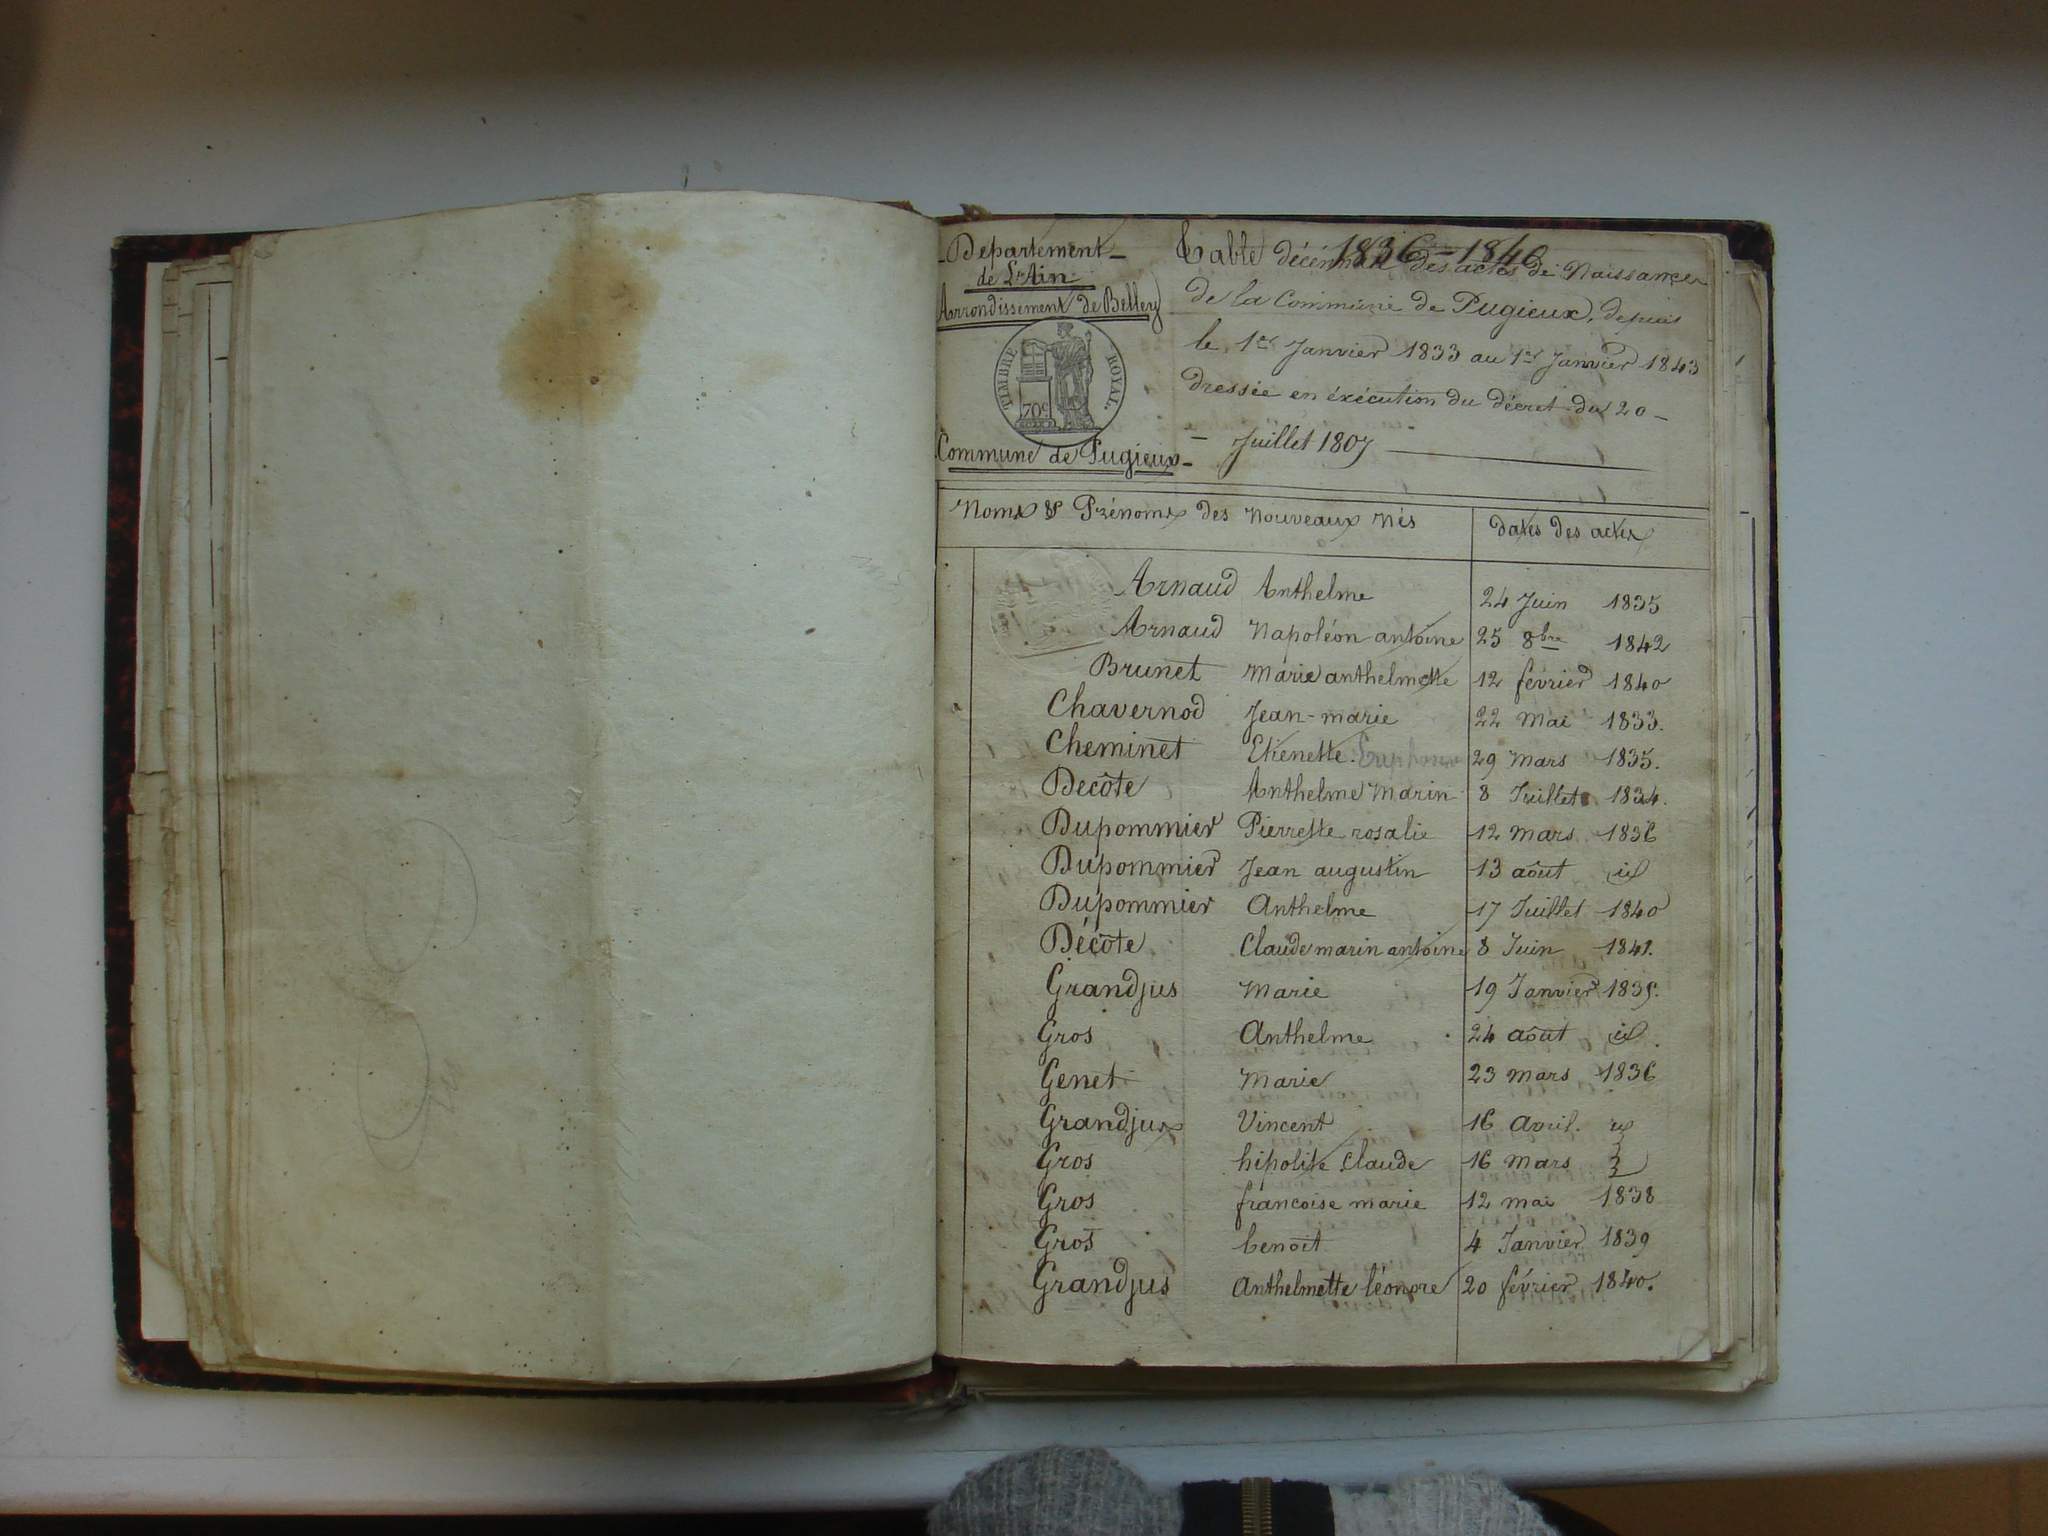 Departement
de L'Ain
Arrondissement de Belley
TIMBRE ROYAL
70c
Commune de Pugieux
1836 - 1840
Table décennale des actes de Naissances
de la Commune de Pugieux, depuis
le 1er Janvier 1833 au 1er Janvier 1843
dressée en éxécution du décret du 20
Juillet 1807
Noms & Prénoms des Nouveaux Nés dates des actes
Arnaud Anthelme 24 Juin 1835
Arnaud Napoléon antoine 25 8bre 1842
Brunet Marie anthelmette 12 février 1840
Chavernod Jean-marie 22 Mai 1833.
Cheminet Etienette. 29 Mars 1835.
Decôte Anthelme Marin 8 Juillet 1834.
Dupommier Pierrette rosalie 12 Mars 1836
Dupommier Jean augustin 13 août id
Dupommier Anthelme 17 Juillet 1840
Décôte Claude marin antoine 8 Juin 1841.
Grandjus Marie 19 Janvier 1835.
Gros Anthelme 24 août id.
Genet Marie 23 Mars 1836
Grandjus Vincent 16 Avril. id
Gros hipolite Claude 16 Mars
Gros francoise marie 12 mai 1838
Gros benoit 4 Janvier 1839
Grandjus Anthelmette léonore 20 février 1840.